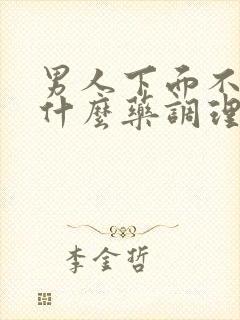 男人下面不
什麼藥調理
李金哲